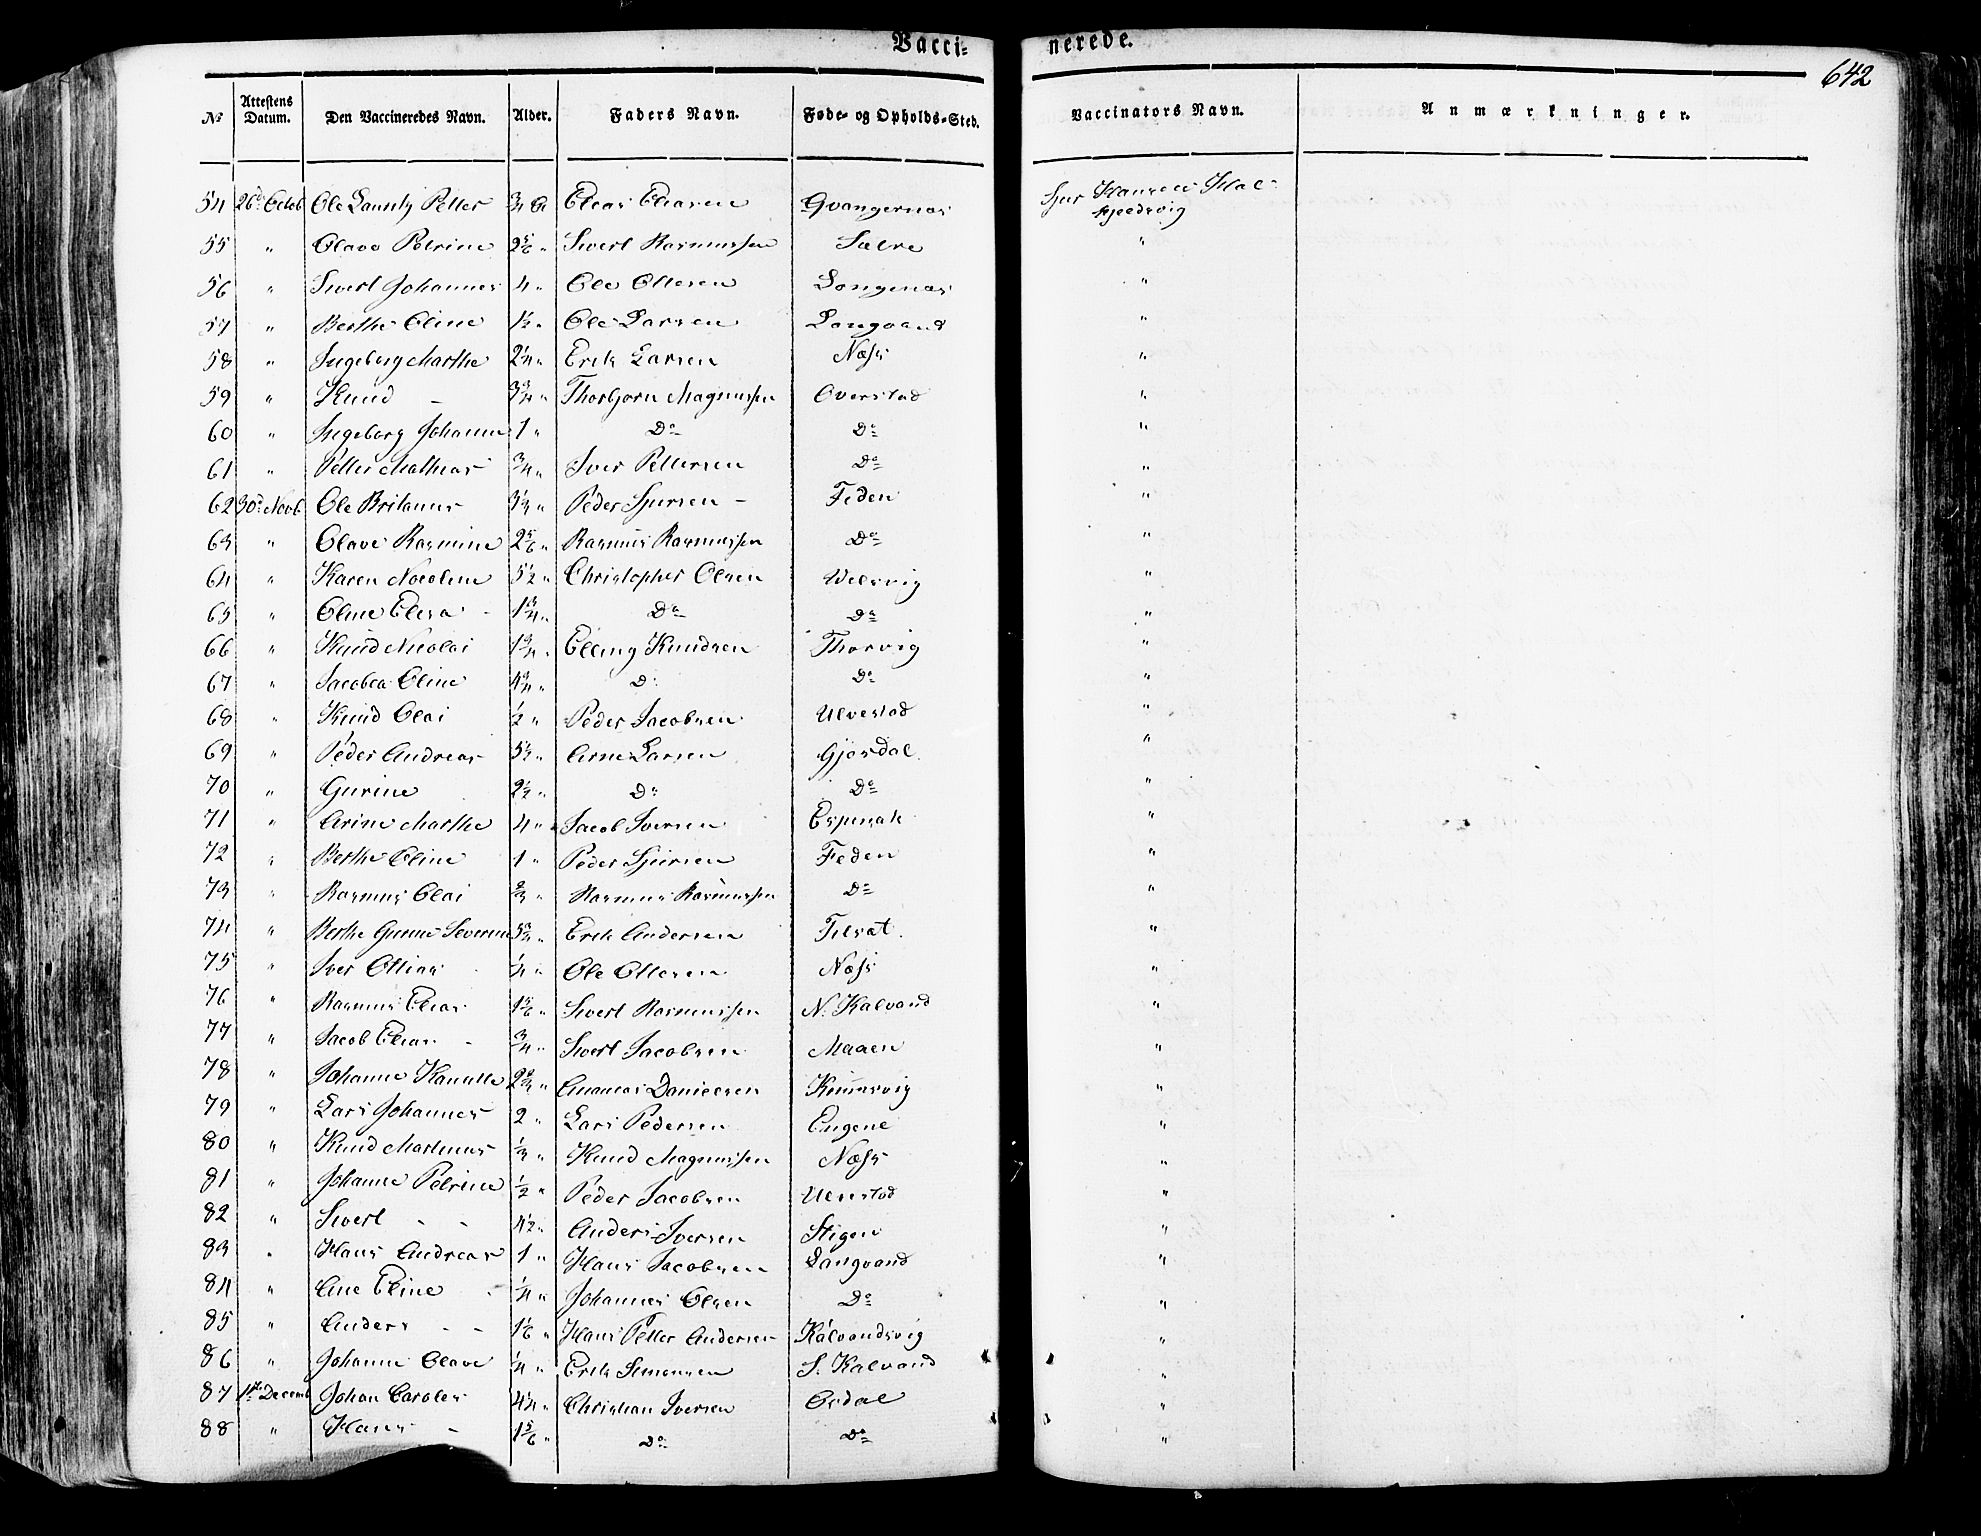 Vacci-nerede.
642
№ Attestens Datum. Den Vaccineredes Navn. Alder. Faders Navn. Føde- og Opholds-Sted. Vaccinators Navn. Anmærkninger.
54 26d Octob Ole Petter 3/4 Elias Eliasen Qvangernæs Sjur Hansen
55 " Olave Petrine 2 5/6 " Sivert Rasmussen Sætre "
56 " Sivert Johannes 4 " Ole Ottesen Langenæs "
57 " Berthe Oline 1 1/2 " Ole Larsen Langvand "
58 " Ingeborg Marthe 2 1/4 " Erik Larsen Næss "
59 " Knud - 3 3/4 " Thorbjørn Magnussen Overstad "
60 " Ingeborg Johanne 1 " Do Do "
61 " Petter Mathias 3/4 " Iver Pettersen Do "
62 30d Novb Ole Britanus 3 1/4 " Peder Sjursen - Feden "
63 " Olave Rasmine 2 5/6 " Rasmus Rasmussen Do "
64 " Karen Nicoline 5 1/2 " Christopher Olsen Velsvig "
65 " Oline Elisa - 1 3/4 " Do Do "
66 " Knud Nicolai 1 3/4 " Elling Knudsen Thorvig "
67 " Jacobea Oline 4 3/4 " Do Do "
68 " Knud Olai 1/2 " Peder Jacobsen Ulvestad "
69 " Peder Andreas 5 1/2 " Arne Larsen Gjørdal. "
70 " Gurine 2 1/2 " Do Do "
71 " Arine Marthe 4 " Jacob Iversen Espenak "
72 " Berthe Oline 1 " Peder Sjursen Feden "
73 " Rasmus Olai 2/3 " Rasmus Rasmussen Do "
74 " Berthe Gurine Severine 3 3/4 " Erik Andersen Tilsæt. "
75 " Iver Ottias 1/4 " Ole Ottesen Næss "
76 " Rasmus Elias 1 5/6 " Sivert Rasmussen N. Kalvand "
77 " Jacob Elias - 3/4 " Sivert Jacobsen Maaen "
78 " Johanne Kanutte 2 3/4 " Ananias Danielsen Kumsvig "
79 " Lars Johannes 2 " Lars Pedersen Engene "
80 " Knud Martinus 1/3 " Knud Magnussen Næss "
81 " Johanne Petrine 1/2 " Peder Jacobsen Ulvestad "
82 " Sivert - - 4 1/2 " Anders Iversen Stigen "
83 " Hans Andreas 1 " Hans Jacobsen Langvand "
84 " Ane Eline 1/4 " Johannes Olsen Do "
85 " Anders - - 1 1/6 " Hans Petter Andersen Kalvandsvig "
86 " Johanne Olave 1/4 " Erik Simonsen S. Kalvand "
87 1ste Decemb Johan Caroles 4 1/4 " Christian Iversen Ørdal "
88 " Hans - 1 5/6 " Do Do "